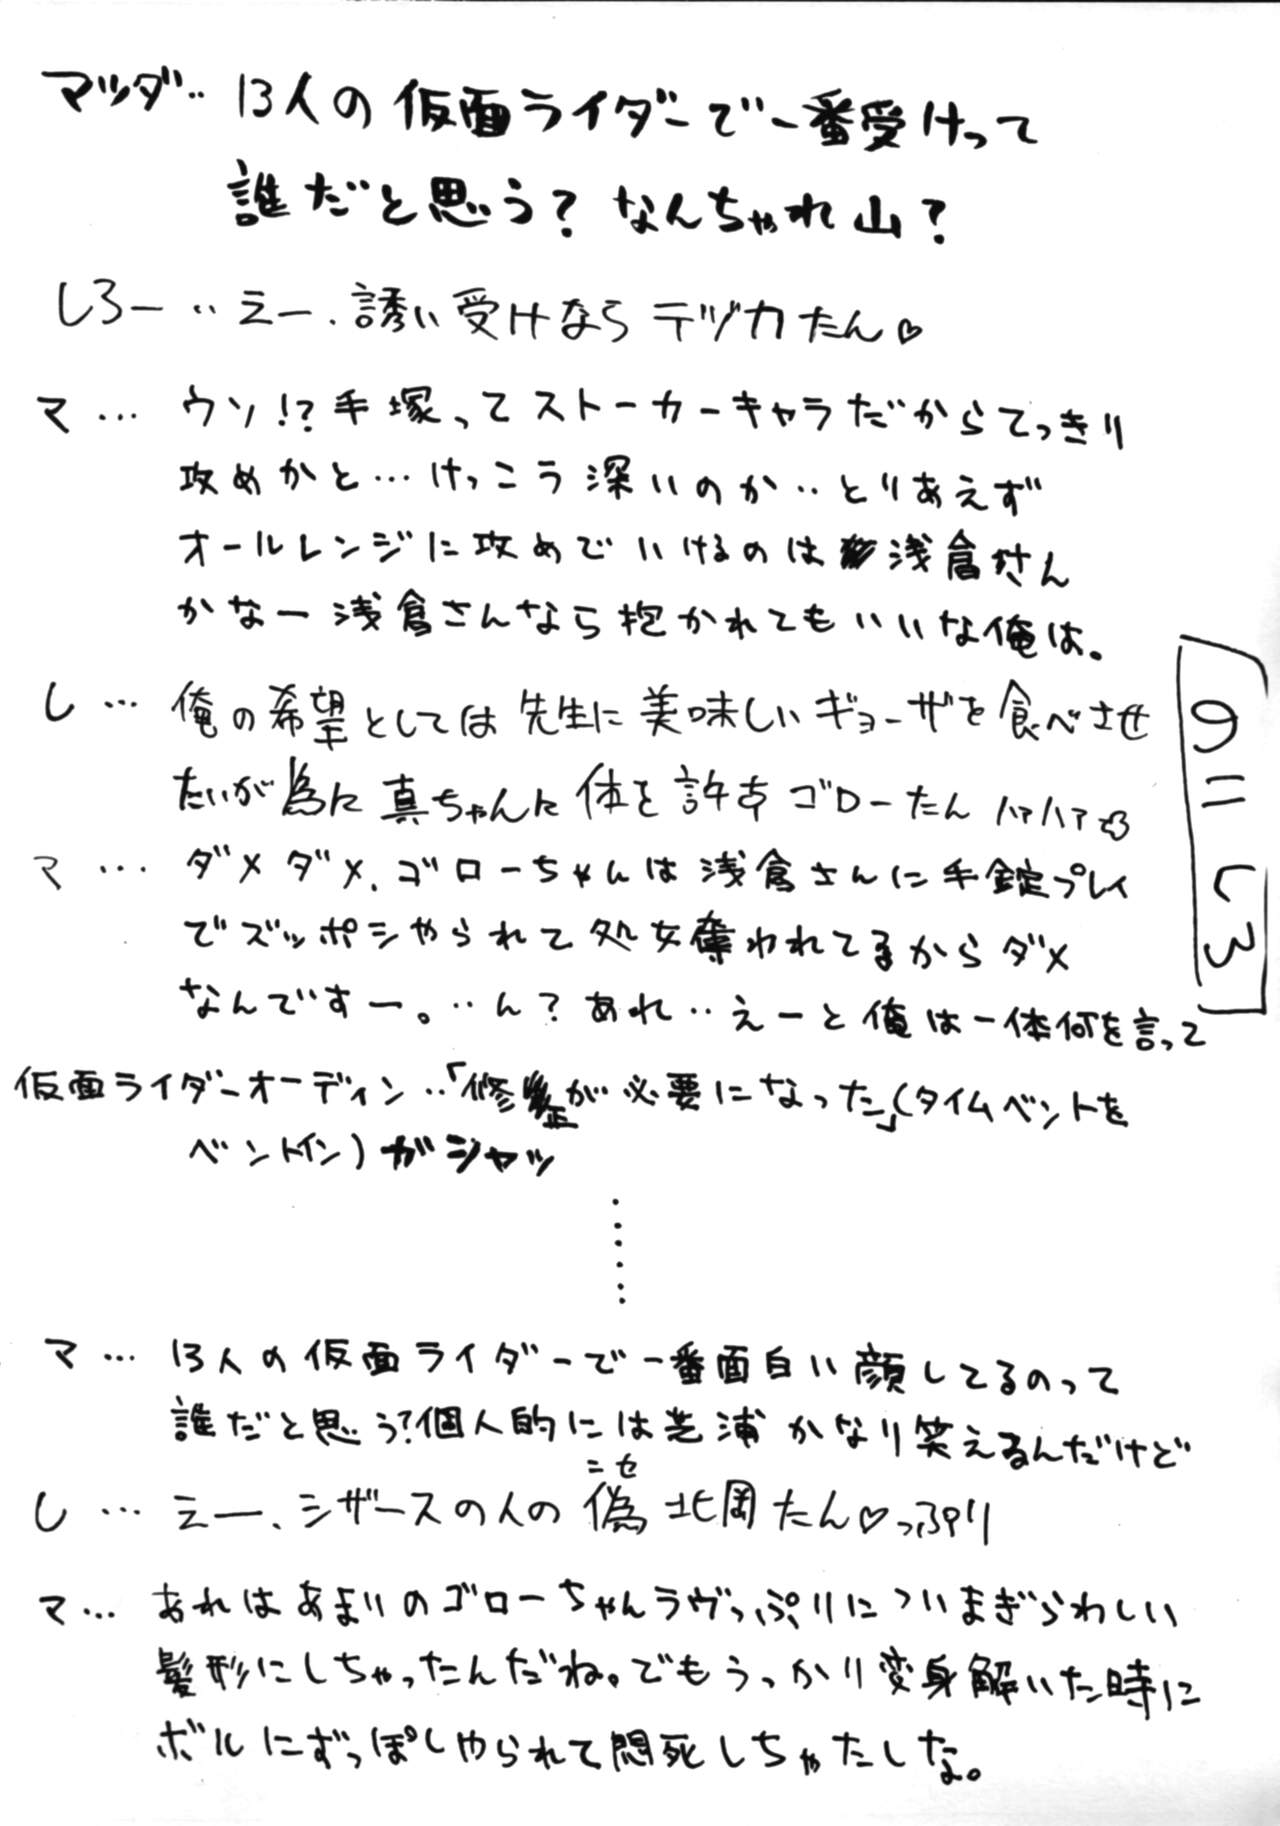 マツダ‥ 13人の仮面ライダーで一番受けって
誰だと思う？なんちゃれ山？
しろー‥えー、誘い受けならテヅカたん♡
マ… ウソ!?手塚ってストーカーキャラだからてっきり
攻めかと…けっこう深いのか‥とりあえず
オールレンジに攻めでいけるのは浅倉さん
かなー浅倉さんなら抱かれてもいいな俺は。
し… 俺の希望としては先生に美味しいギョーザを食べさせ
たいが為に真ちゃんに体を許すゴローたんハアハア♡
マ… ダメダメ、ゴローちゃんは浅倉さんに手錠プレイ
でズッポシやられて処女奪われてるからダメ
なんですー。‥ん？あれ‥えーと俺は一体何を言って
仮面ライダーオーディン‥「修正が必要になった」(タイムベントを
ベントイン)ガシャッ
……
マ… 13人の仮面ライダーで一番面白い顔してるのって
誰だと思う？個人的には芝浦かなり笑えるんだけど
し… えー、シザースの人の偽北岡たん♡っぷり
ニセ
マ… あれはあまりのゴローちゃんラヴっぷりについまぎらわしい
髪形にしちゃったんだね。でもうっかり変身解いた時に
ボルにずっぽしやられて悶死しちゃたしな。
のりしろ